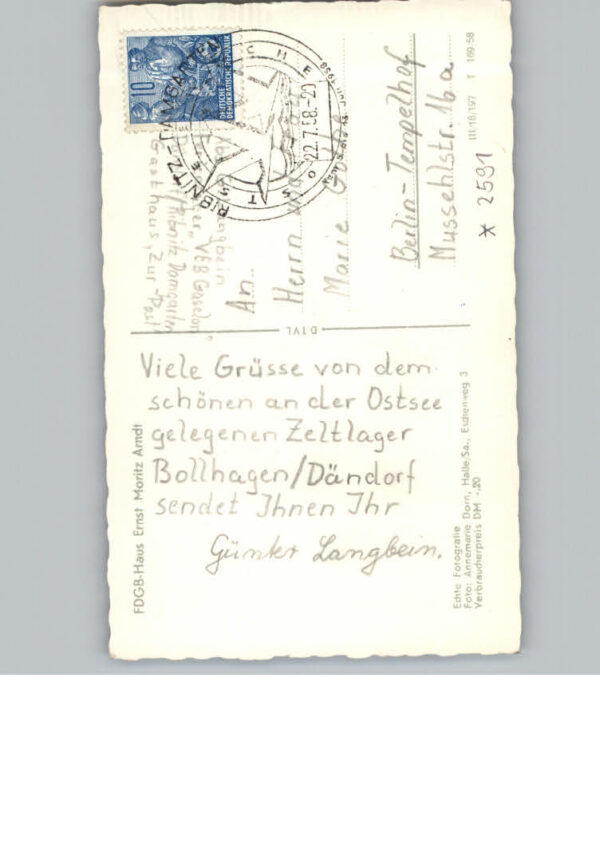 FDGB-Haus Ernst Moritz Arndt
Viele Grüsse von dem
schönen an der Ostsee
gelegenen Zeltlager
Bollhagen/Dändorf
sendet Ihnen Ihr
Günter Langbein.
Echte Fotografie
Foto: Annemarie Dorn, Halle/Sa., Eschenweg 3
Verbraucherpreis DM -,20
DTVL
10
DEUTSCHE
DEMOKRATISCHE REPUBLIK
RIBNITZ-DAMGARTEN
OSTSEE
22.7.58.-20
Langbein
VEB Gaselan
Ribnitz Damgarten
Gasthaus „Zur Post"
An
Herrn und
Marie
Berlin-Tempelhof
Mussehlstr. 16a
III/18/197 T 169-58
* 2591